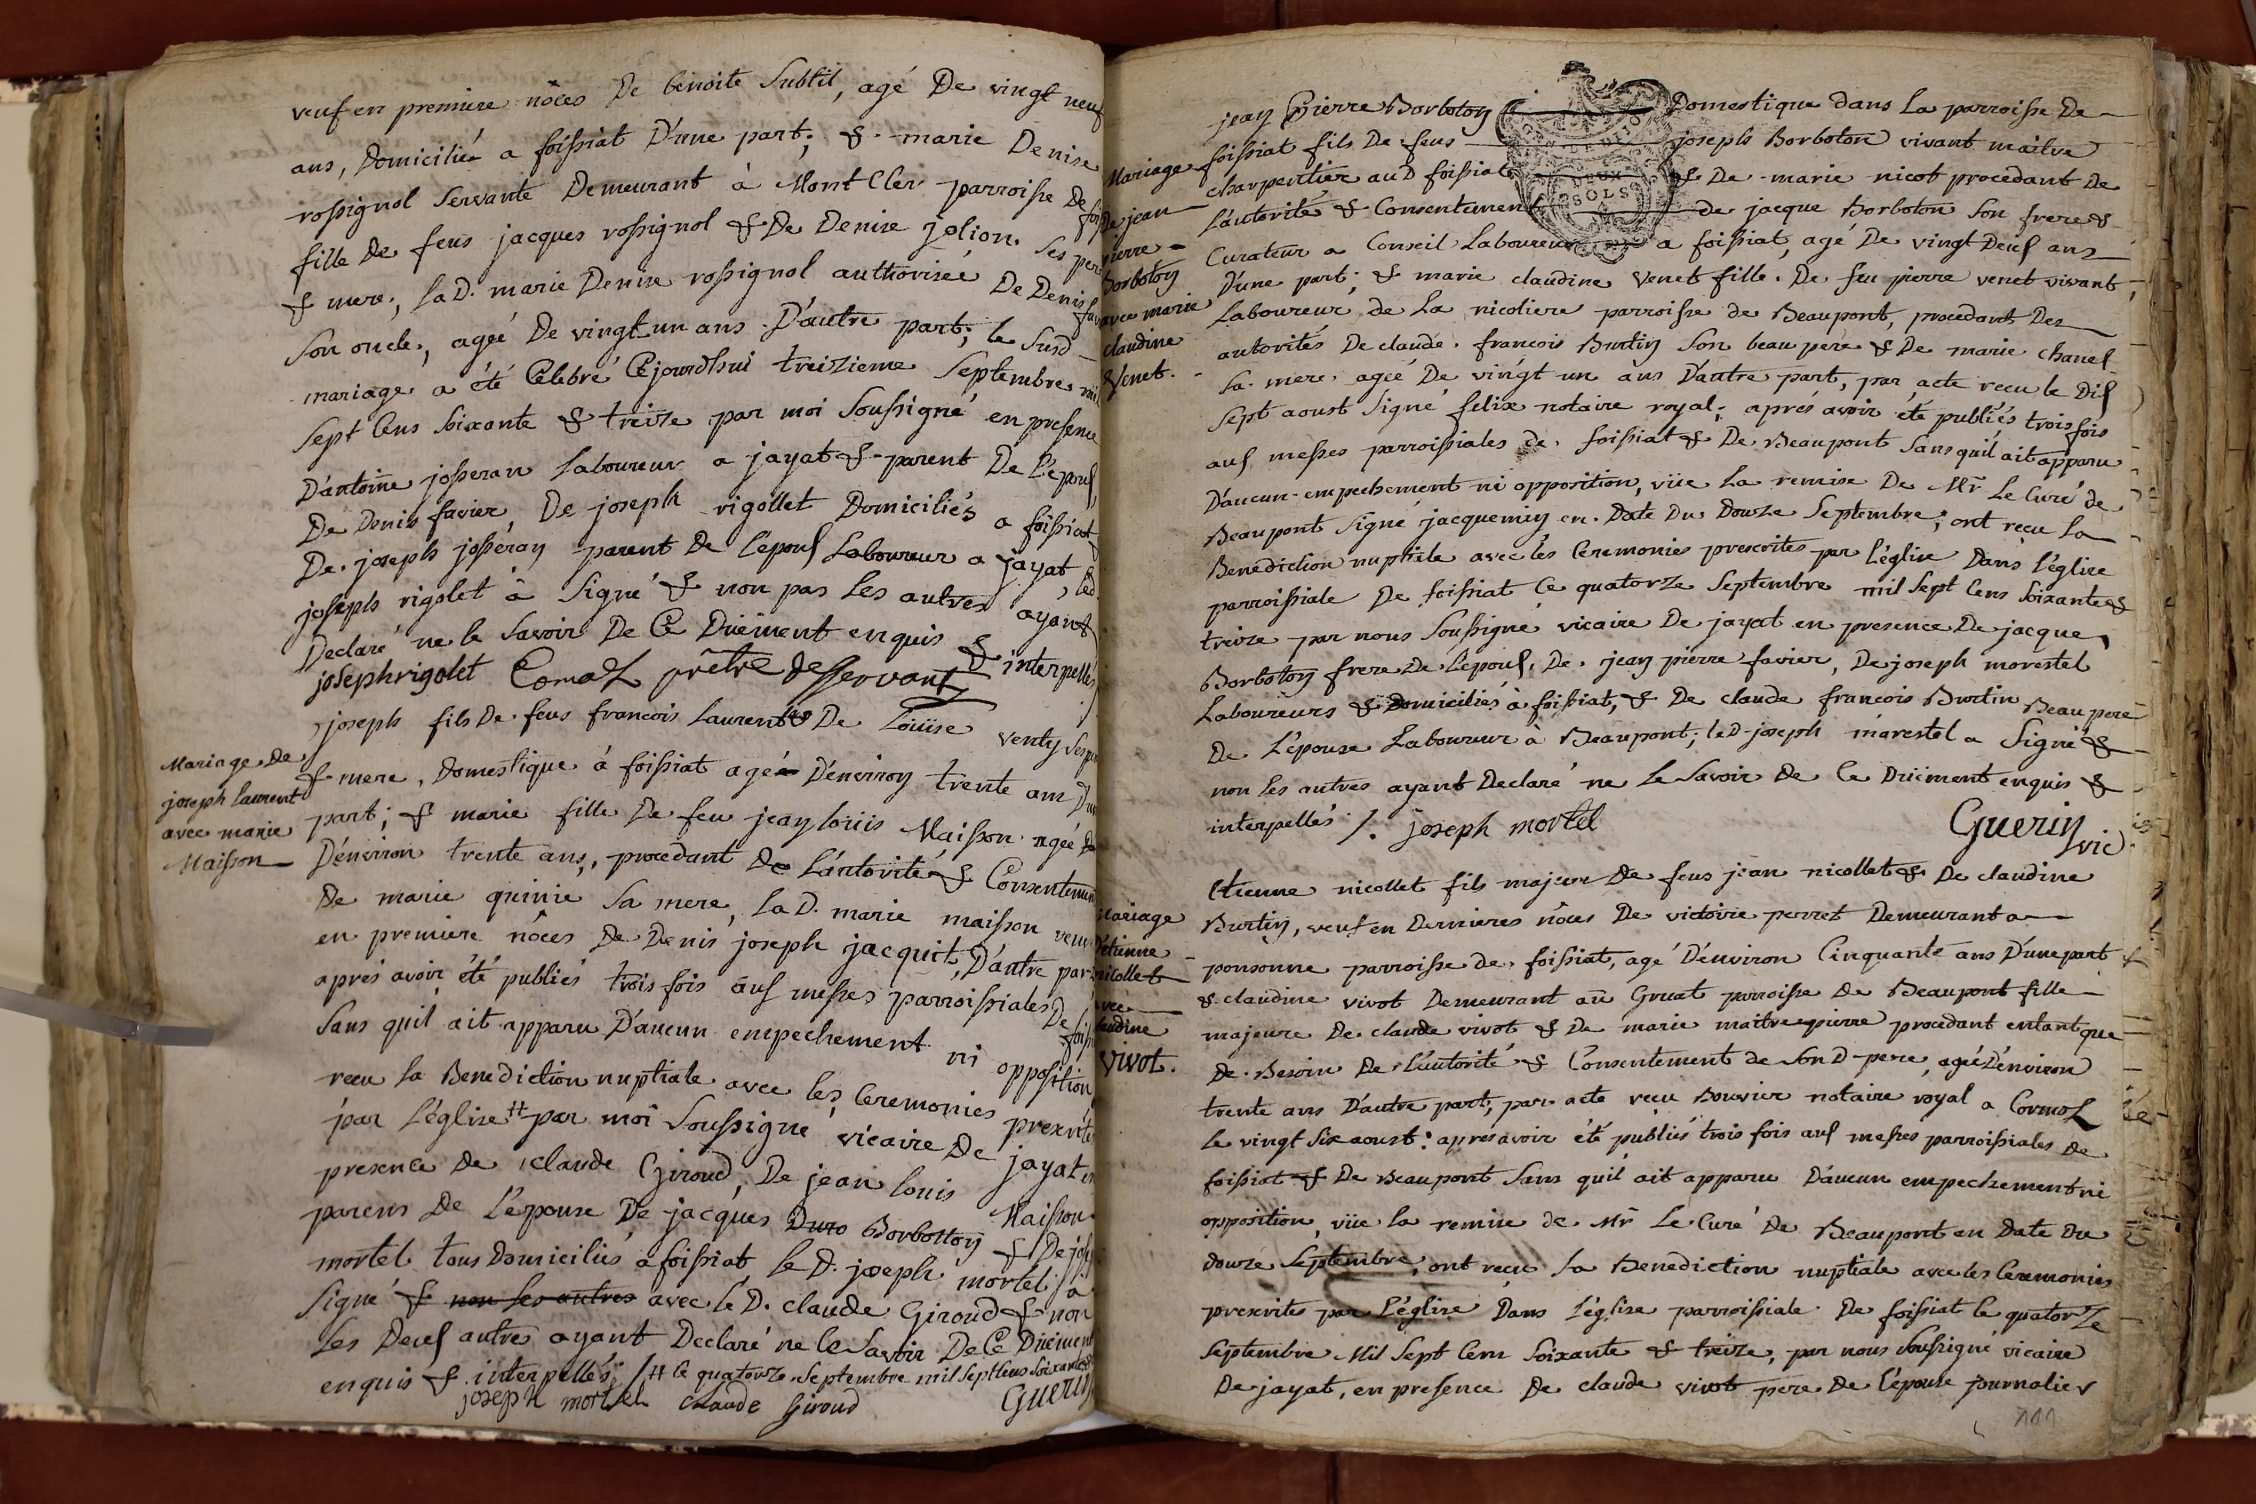 veuf en premiere nôces De benoite Subtil, agé De vingt neuf
ans, Domicilié a foissiat D'une part; & marie Denise
rossignol Servante Demeurant à MontCler parroisse De
fille De feus jacques rossignol & De Denise jolion Ses per
& mere, la D. marie Denise rossignol authorisée De Denis
Son oncle, agée De vingt un ans D'autre part; le Susd
mariage a été Celebré Cejourdhui treizieme Septembre mil
Sept Cens Soixante & treize par moi Soussigné en presence
D'antoine josseran laboureur a jayat & parent De L'epouf
De Denis favier, De joseph rigollet Domiciliés a foissiat
De joseph josseran parent De l'epouf Laboureur a jayat, led
joseph rigolet à Signé & non pas les autres ayant
Declaré ne le Savoir De Ce Duëment enquis & interpellés
joseph rigolet Comas prêtre desservant
Mariage de
joseph laurent
avec marie
Maisson
joseph fils De feus francois Laurent & De Loüise Venty Ses per
& mere, Domestique à foissiat agé D'environ trente ans D'une
part; & marie fille De feu jean loüis Maisson agée
D'environ trente ans, procedant de L'autorité & Consentement
De marie quinie Sa mere, la D. marie maisson veuve
en premiere nôces De Denis joseph jacquit, D'autre part
aprés avoir été publiés trois fois auf messes parroissiales De foissi
Sans quil ait apparu D'aucun empechement ni opposition
recu la Benediction nuptiale avec les Ceremonies prescrites
par L'église ++ par moi Soussigné vicaire De jayat en
presence De claude Giroud, De jean louis Maisson
parens De L'épouse De jacques Duro Borboton & De jos
mortel tous Domiciliés a foissiat le D. joseph mortel a
Signé & non les autres avec le D. claude Giroud & non
Les Deuf autre ayant Declaré ne le Savoir De Ce Duëment
enquis & interpellés ++ Ce quatorze Septembre mil Sept Cens Soixante &
joseph mortel claude Giroud Guerin
Mariage
De jean
pierre
Borboton
avec marie
claudine
Venet.
jean Pierre Borboton Domestique dans La parroisse De
foissiat fils De feus joseph Borboton vivant maitre
charpentier auD foissiat & De marie nicot procedant De
L'autorité & Consentement de jacque Borboton Son frere &
Curateur a Conseil Laboureur a foissiat, agé De vingt Deuf ans
D'une part; & marie claudine Venet fille De feu pierre venet vivant
Laboureur de La nicoliere parroisse de Beaupont, procedant Des
autorités De claude francois Burtin Son beau pere & De marie chanel
Sa mere agée De vingt un ans D'autre part, par acte recu le Dif
Sept aoust Signé felix notaire royal; aprés avoir été publiés trois fois
auf messes parroissiales de foissiat & De Beaupont Sans quil ait apparu
D'aucun empechement ni opposition, vüe la remise De Mr Le Curé de
Beaupont Signé jacquemin en Date Du Douze Septembre; ont recu la
Benediction nuptiale avec les Ceremonies prescrites par L'église Dans l'église
parroissiale De foissiat Ce quatorze Septembre mil Sept Cens Soixante &
treize par nous Soussigné vicaire De jayat en presence De jacque
Borboton frere De L'epouf, De jean pierre favier, De joseph morestel
Laboureurs & Domiciliés à foissiat, & De claude francois Burtin Beau pere
De L'épouse Laboureur à Beaupont; leD joseph marestel a Signé &
non les autres ayant Declaré ne le Savoir de Ce Duëment enquis &
interpellés /. joseph mortel Guerin vic.
Mariage
D'etienne
nicollet
avec
claudine
Vivot.
Etienne nicollet fils majeur De feus jean nicollet & De claudine
Burtin, veuf en Dernieres nôces De victoire perret Demeurant a
ponsonne parroisse de foissiat, agé D'environ Cinquante ans D'une part
& claudine vivot Demeurant au Gruat parroisse De Beaupont fille
majeure De claude vivot & De marie maitrepierre procedant entant que
De Besoin De L'autorité & Consentement de Son D pere, agée D'environ
trente ans D'autre part, par acte recu Bouvier notaire royal a Cormoz
le vingt Six aoust: aprés avoir été publiés trois fois auf messes parroissiales de
foissiat & De Beaupont Sans quil ait apparu D'aucun empechement ni
opposition, vüe la remise de Mr Le Curé De Beaupont en Date Du
douze Septembre, ont recu la Benediction nuptiale avec les Ceremonies
prescrites par L'église Dans l'église parroissiale De foissiat le quatorze
Septembre Mil Sept Cens Soixante & treize, par nous Soussigné vicaire
De jayat, en presence De claude vivot pere De l'épouse journalier